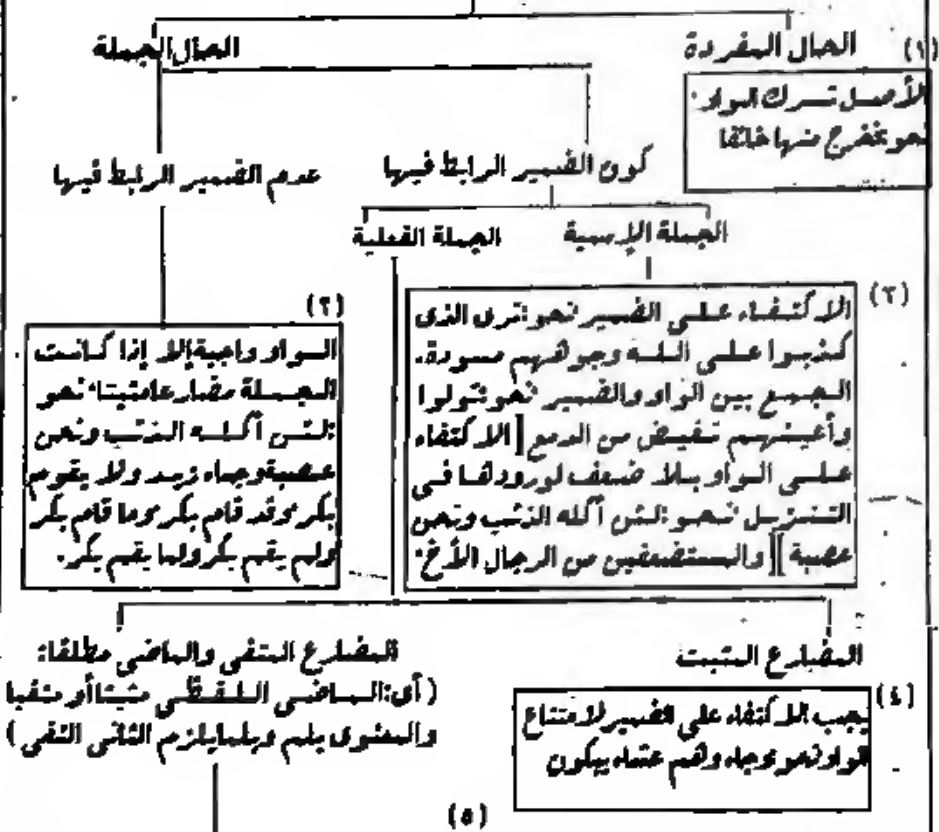 (١) الحال المفردة
الحال الجملة
الأصل تسرك الواو
نحو فخرج منها خائفا
كون الضمير الرابط فيها
عدم الضمير الرابط فيها
الجملة الإسمية
الجملة الفعلية
(٣)
الاكتفاء على الضمير نحو ترى الذى
كذبوا على الله وجوههم مسودة.
الجمع بين الواو والضمير نحو تولوا
وأعينهم تفيض من الدمع [الاكتفاء
على الواو بلا ضعف لورودها فى
التنزيل نحو: لئن أكله الذئب ونحن
عصبة][والمستضعفين من الرجال الأخ
(٢)
الواو واجبة إلا إذا كانت
الجملة مضارعا مثبتا نحو
لئن أكله الذئب ونحن
عصبة وجاء زيد ولا يقوم
بكر وقد قام بكر وما قام بكر
ولم يقم بكر ولما يقم بكر.
المضارع المثبت
(٤)
يجب الاكتفاء على الضمير لامتناع
الواو نحو وجاء وهم عشاء يبكون
المضارع المنفى والماضى مطلقا:
(أى: الماضى اللفظى مثبتا أو منفيا
والمعنوى بلم وبلما يلزم الثانى النفى)
(٥)